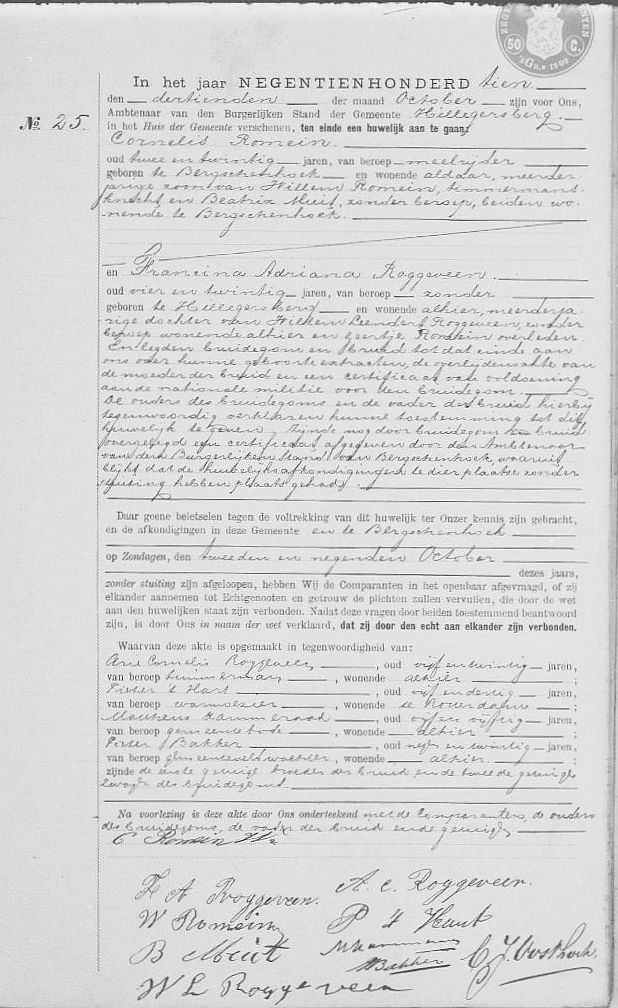 50 C.
In het jaar NEGENTIENHONDERD tien.
den dertienden der maand October zijn voor Ons,
Ambtenaar van den Burgerlijken Stand der Gemeente Hillegersberg.
No. 25.
in het Huis der Gemeente verschenen, ten einde een huwelijk aan te gaan:
Cornelis Romein.
oud twee en twintig jaren, van beroep meelrijder
geboren te Bergschenhoek en wonende aldaar, meerder-
jarige zoon van Willem Romein, timmermans-
knecht en Beatrix Muit, zonder beroep, beiden wo-
nende te Bergschenhoek.
en Francina Adriana Roggeveen.
oud vier en twintig jaren, van beroep zonder
geboren te Hillegersberg en wonende alhier, meerderja-
rige dochter van Willem Leendert Roggeveen, zonder
beroep wonende alhier en Geertje Romein overleden.
En legden Bruidegom en Bruid tot dat einde aan
ons over hunne geboorte extracten, de overlijdensakte van
de moeder der Bruid en een certificaat van voldoening
aan de nationale militie voor den Bruidegom.
De ouders des Bruidegoms en de vader der Bruid hierbij
tegenwoordig verklaren hunne toestemming tot dit
huwelijk te geven. Zijnde nog door Bruidegom en Bruid
overgelegd een certificaat afgegeven door den Ambtenaar
van den Burgerlijken Stand van Bergschenhoek, waaruit
blijkt dat de huwelijksafkondigingen te dier plaatse zonder
stuiting hebben plaats gehad.
Daar geene beletselen tegen de voltrekking van dit huwelijk ter Onzer kennis zijn gebracht,
en de afkondigingen in deze Gemeente en te Bergschenhoek
op Zondagen, den tweeden en negenden October
dezes jaars,
zonder stuiting zijn afgeloopen, hebben Wij de Comparanten in het openbaar afgevraagd, of zij
elkander aannemen tot Echtgenooten en getrouw de plichten zullen vervullen, die door de wet
aan den huwelijken staat zijn verbonden. Nadat deze vragen door beiden toestemmend beantwoord
zijn, is door Ons in naam der wet verklaard, dat zij door den echt aan elkander zijn verbonden.
Waarvan deze akte is opgemaakt in tegenwoordigheid van:
Arie Cornelis Roggeveen, oud vijf en twintig jaren,
van beroep timmerman, wonende alhier;
Pieter 't Hart, oud vijf en dertig jaren,
van beroep warmoezier, wonende te Rotterdam;
Mattheus Hammeraad, oud vijftig jaren,
van beroep gemeentebode, wonende alhier;
Pieter Bakker, oud negen en twintig jaren,
van beroep gemeenteveldwachter, wonende alhier.
zijnde de eerste getuige broeder der Bruid en de tweede getuige
zwager des Bruidegoms.
Na voorlezing is deze akte door Ons onderteekend met de Comparanten, de ouders
des Bruidegoms, de vader der Bruid en de getuigen
C Romein Wz
F A Roggeveen. A C. Roggeveen.
W Romein P 't Hart
B Muit MHammeraad
PBakker C. J. Oosthoek.
W L Roggeveen